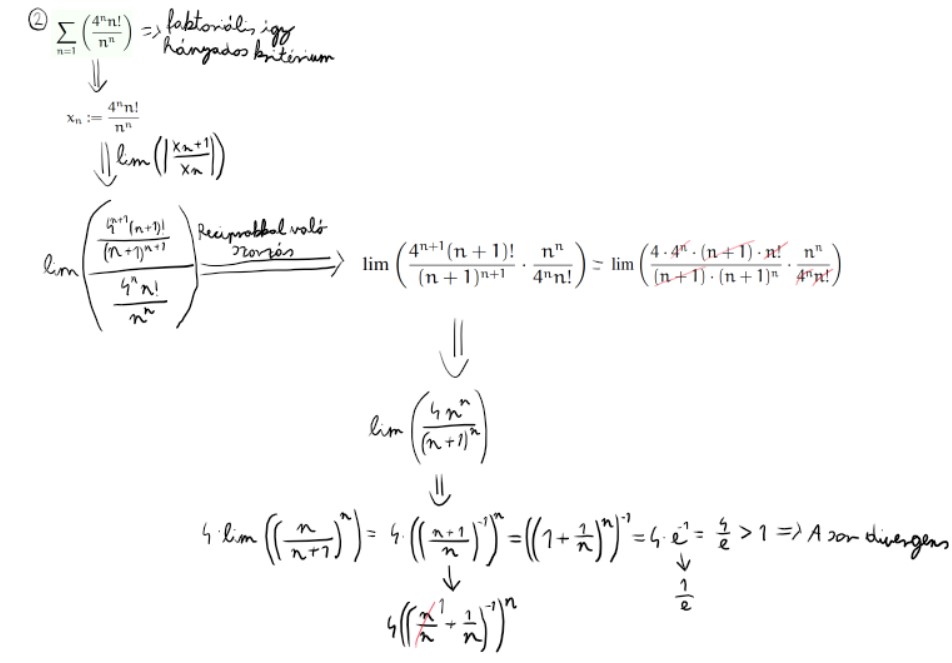 ② $\sum_{n=1} \left(\frac{4^n n!}{n^n}\right)$ => faktoriális így
hányados kritérium
⇓
$x_n := \frac{4^n n!}{n^n}$
⇓ $\lim\left(\left|\frac{x_{n+1}}{x_n}\right|\right)$
$\lim\left(\frac{\frac{4^{n+1}(n+1)!}{(n+1)^{n+1}}}{\frac{4^n n!}{n^n}}\right)$ Reciprokkal való szorzás ⟹ $\lim\left(\frac{4^{n+1}(n+1)!}{(n+1)^{n+1}} \cdot \frac{n^n}{4^n n!}\right) = \lim\left(\frac{4 \cdot 4^n \cdot (n+1) \cdot n!}{(n+1) \cdot (n+1)^n} \cdot \frac{n^n}{4^n n!}\right)$
⇓
$\lim\left(\frac{4n^n}{(n+1)^n}\right)$
⇓
$4 \cdot \lim\left(\left(\frac{n}{n+1}\right)^n\right) = 4 \cdot \left(\left(\frac{n+1}{n}\right)^{-1}\right)^n = \left(\left(1+\frac{1}{n}\right)^n\right)^{-1} = 4 \cdot e^{-1} = \frac{4}{e} > 1$ => A sor divergens
↓ ↓
$\frac{1}{e}$
$4\left(\left(\frac{n}{n}^1 + \frac{1}{n}\right)^{-1}\right)^n$